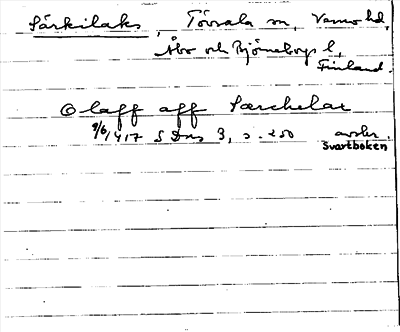 Särkilaks, Törsala sn, Vemo hd,
Åbo och Björneborgs l,
Finland.
Olaff aff Særchelax
9/6 1417 SDns 3, s. 250 avskr.
Svartboken